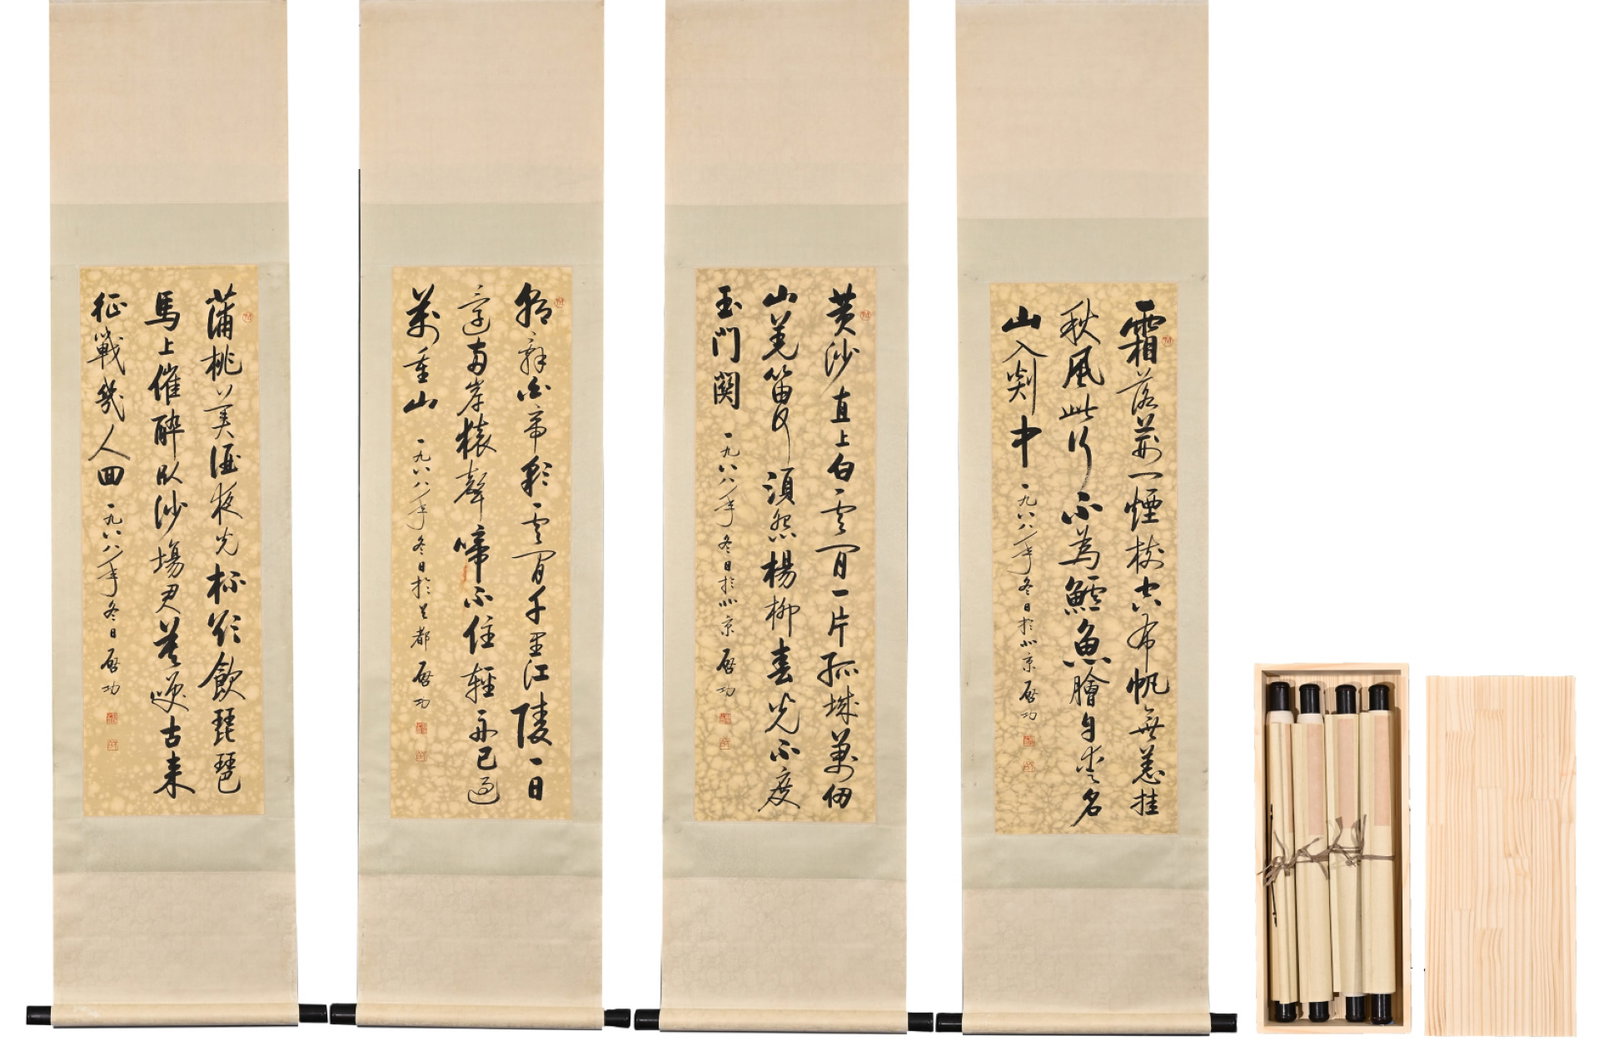 霜落荊門煙樹空布帆無恙挂
秋風此行不為鱸魚膾自愛名
山入剡中 一九八八年冬日於北京 啟功
黃沙直上白雲間一片孤城萬仞
山羌笛何須怨楊柳春光不度
玉門關 一九八八年冬日於北京 啟功
朝辭白帝彩雲間千里江陵一日
還兩岸猿聲啼不住輕舟已過
萬重山 一九八八年冬日於首都 啟功
蒲桃美酒夜光杯欲飲琵琶
馬上催醉臥沙場君莫咲古來
征戰幾人回 一九八八年冬日 啟功